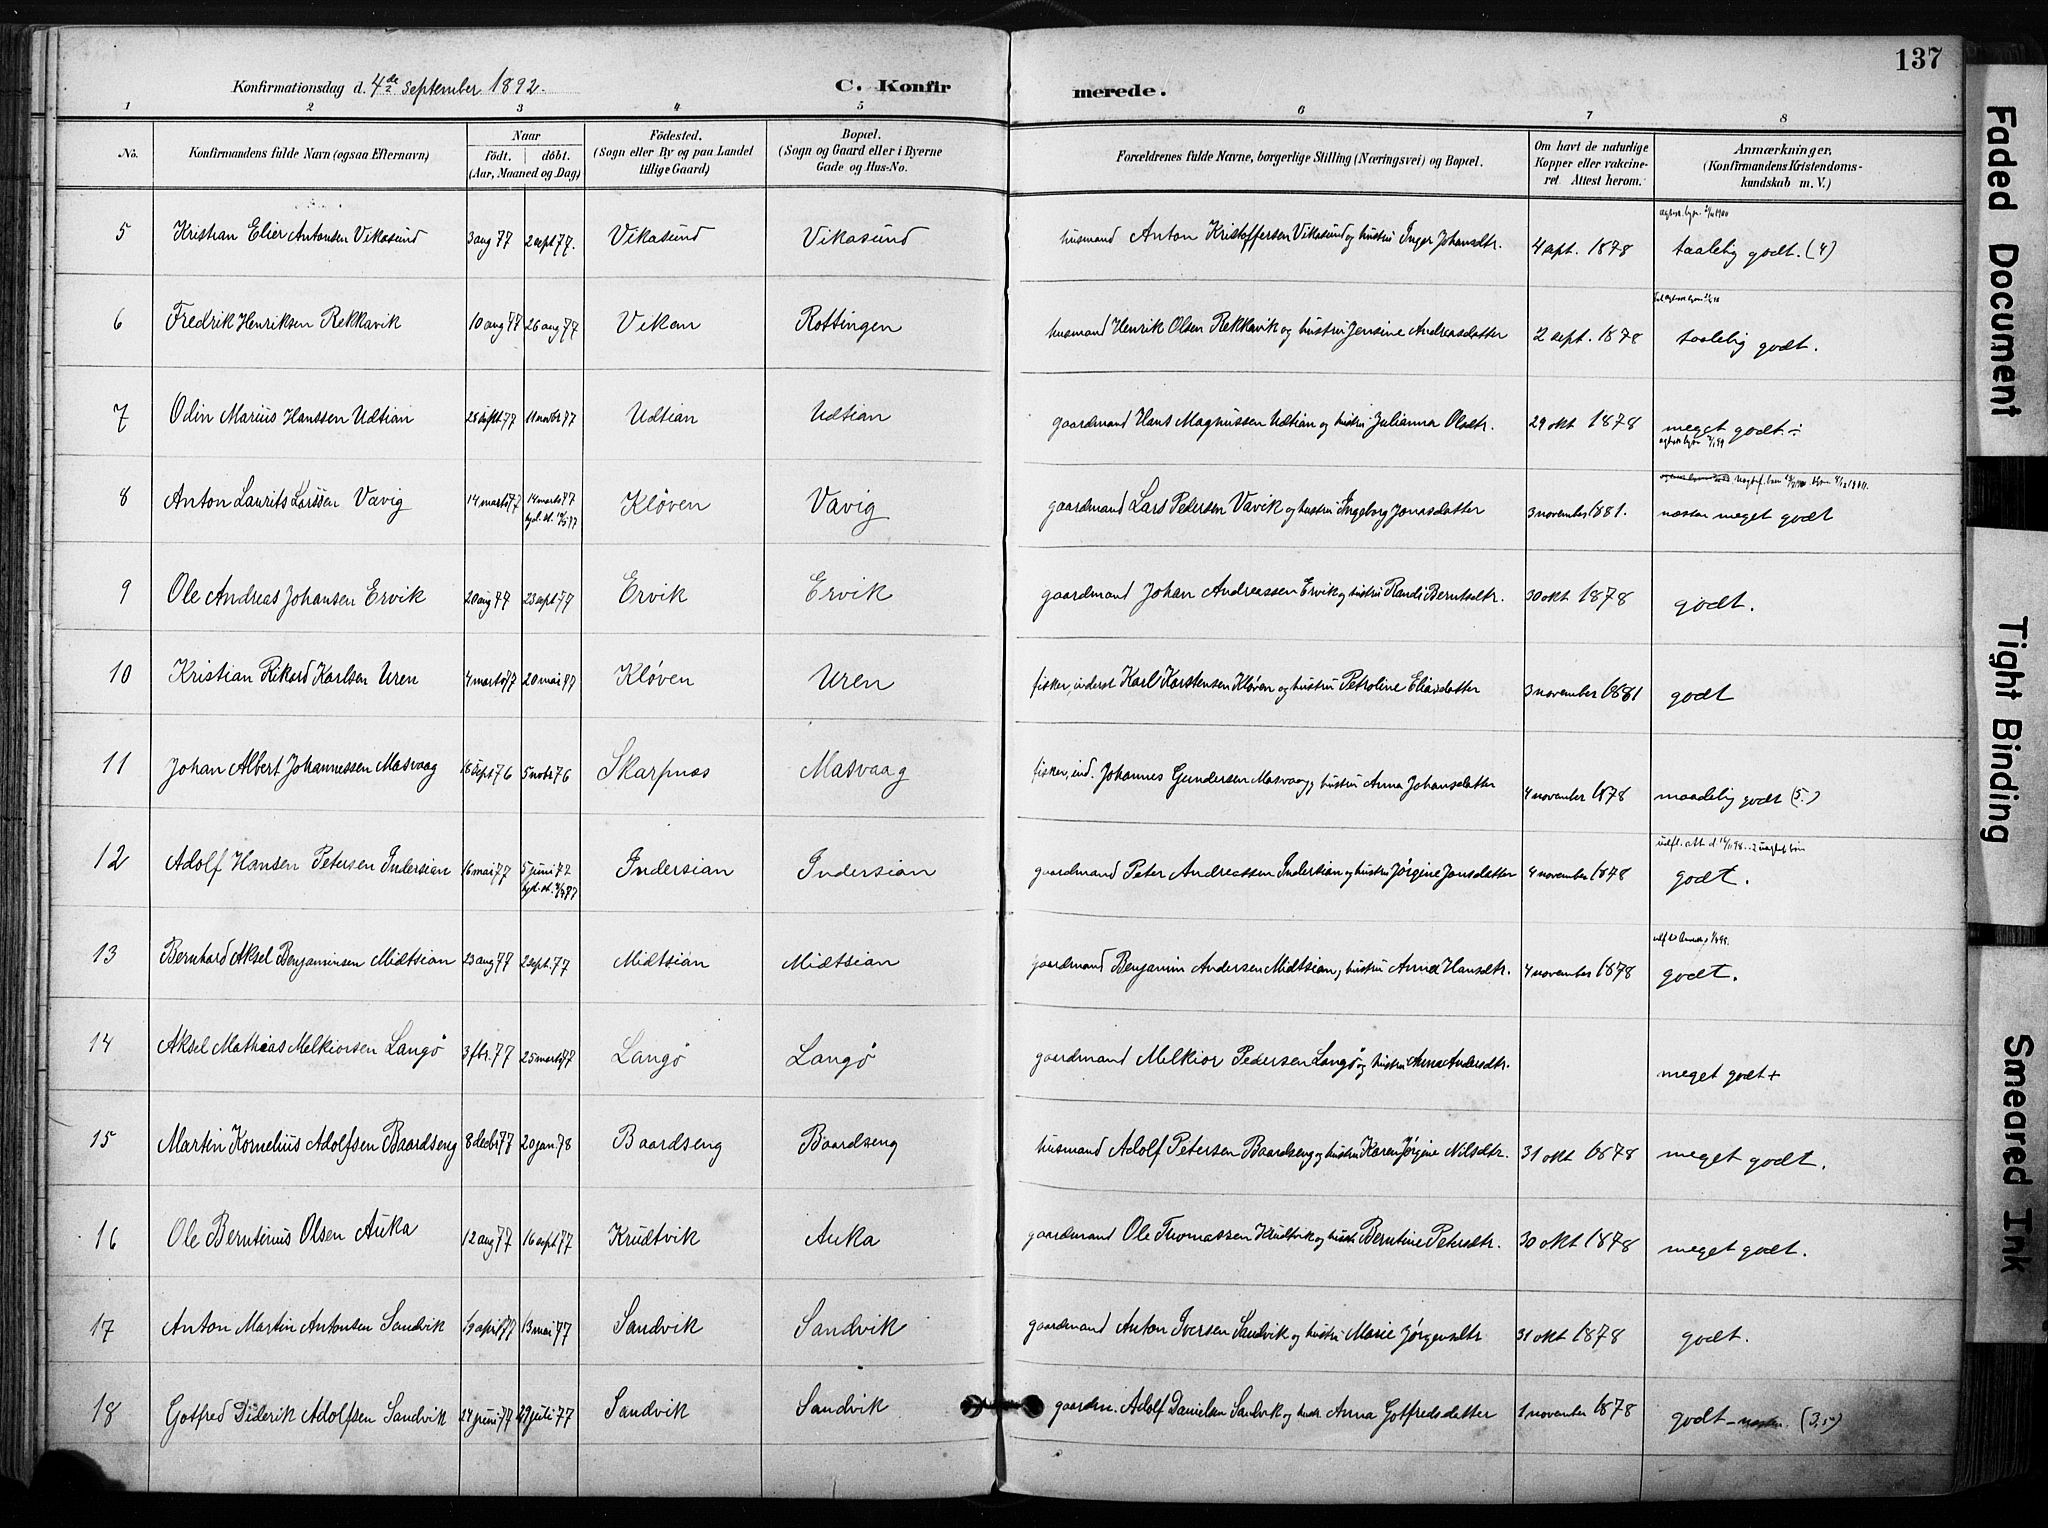 137
Konfirmationsdag d. 4de september 1892.
C. Konfirmerede.
1 2 3 4 5 6 7 8
No.
Konfirmandens fulde Navn (ogsaa Efternavn)
Naar
født. døbt.
(Aar, Maaned og Dag)
Fødested.
(Sogn eller By og paa Landet
tillige Gaard)
Bopæl.
(Sogn og Gaard eller i Byerne
Gade og Hus-No.
Forældrenes fulde Navne, borgerlige Stilling (Næringsvei) og Bopæl.
Om havt de naturlige
Kopper eller vakcine-
ret Attest herom.
Anmærkninger,
(Konfirmandens Kristendoms-
kundskab m. V.)
5 Kristian Elier Antonsen Vikasund 3 aug 77 2 sept 77. Vikasund Vikasund husmand Anton Kristoffersen Vikasund og hustru Inger Johansdtr. 4 sept. 1878 taalelig godt. (4)
6 Fredrik Henriksen Rekkavik 10 aug 77 26 aug 77 Vikan Rottingen husmand Henrik Olsen Rekkavik og hustru Jensine Andreasdatter 2 sept. 1878 taalelig godt.
7 Odin Marius Hanssen Udtian 28 sept 77 11 novbr 77 Udtian Udtian gaardmand Hans Magnussen Udtian og hustru Julianna Olsdtr. 29 okt 1878 meget godt. ÷
8 Anton Laurits Larssen Vavig 14 marts 77 14 marts 77 Kløven Vavig gaardmand Lars Pedersen Vavik og hustru Ingeborg Jonasdatter 3 november 1881. næsten meget godt
9 Ole Andreas Johansen Ervik 20 aug 77 23 sept 77 Ervik Ervik gaardmand Johan Andreassen Ervik og hustru Randi Berntsdtr. 30 okt 1878 godt.
10 Kristian Rikard Karlsen Uren 4 marts 77 20 mai 77 Kløven Uren fisker, inderst Karl Karstensen Kløven og hustru Petroline Eliasdatter 3 november 1881 godt
11 Johan Albert Johannessen Masvaag 16 sept 76 5 nobr 76 Skarpnes Masvaag fisker, ind. Johannes Gundersen Masvaag og hustru Anna Johansdatter 4 november 1878 maadelig godt (5.)
12 Adolf Hansen Petersen Indersian 16 mai 77 5 juni 77 Indersian Indersian gaardmand Peter Andreassen Indersian og hustru Jørgine Jonsdatter 4 november 1878 godt.
13 Bernhard Aksel Benjaminsen Midtsian 23 aug 77 2 sept. 77 Midtsian Midtsian gaardmand Benjamin Andersen Midtsian og hustru Anna Hansdtr. 4 november 1878 godt.
14 Aksel Mathias Melkiorsen Langø 3 fbr. 77 25 marts 77 Langø Langø gaardmand Melkior Pedersen Langø og hustru Anna Andersdtr. meget godt +
15 Martin Kornelius Adolfsen Baardseng 8 decbr 77 20 jan 78 Baardseng Baardseng husmand Adolf Petersen Baardseng og hustru Karen Jørgine Nilsdtr. 31 okt 1878 meget godt.
16 Ole Berntinus Olsen Auka 12 aug 77 16 sept 77 Krudtvik Auka gaardmand Ole Thomassen Krudtvik og hustr. Berntine Petersdtr. 30 okt 1878 meget godt.
17 Anton Martin Antonsen Sandvik 19 april 77 13 mai 77 Sandvik Sandvik gaardmand Anton Iversen Sandvik og hustru Marie Jørgensdtr 31 okt 1878 godt.
18 Gotfred Diderik Adolfsen Sandvik 24 juni 77 29 juli 77 Sandvik Sandvik gaardm. Adolf Danielsen Sandvik og hustr. Anna Gotfredsdatter 1 november 1878 godt – næsten. (3,5)
Faded Document
Tight Binding
Smeared Ink